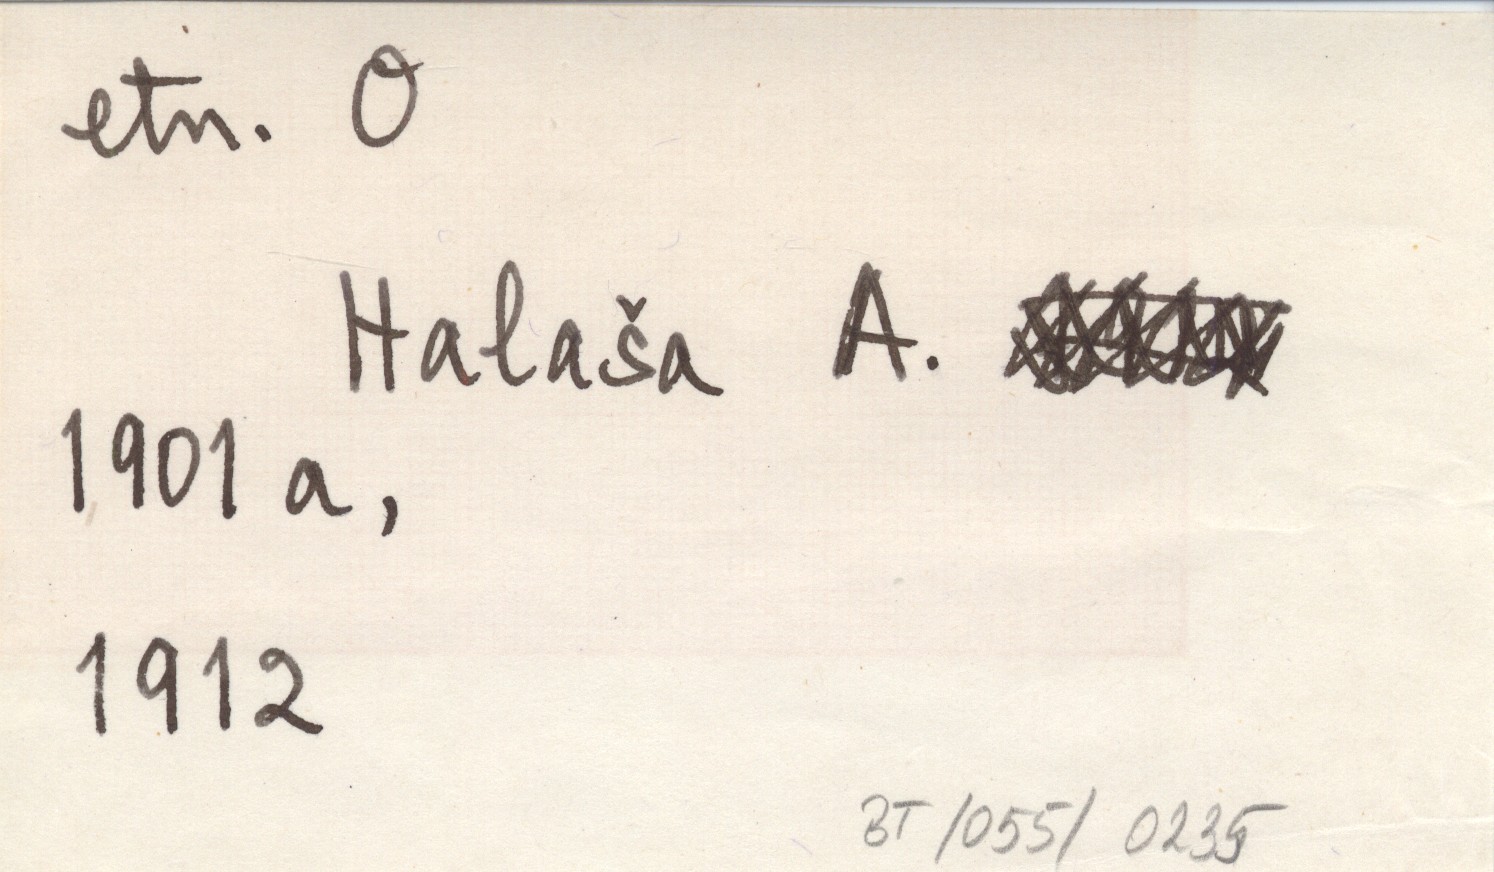 etn. O
Halaša A.
1901 a,
1912
BT /055/ 0235